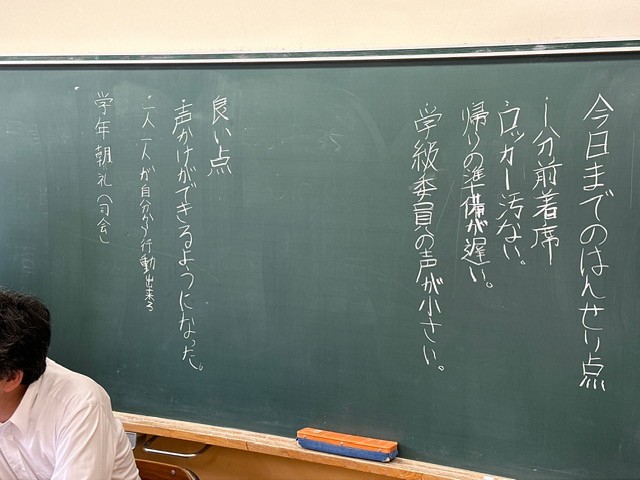 今日までのはんせい点
・1分前着席
・ロッカー汚ない。
・帰りの準備が遅い。
・学級委員の声が小さい。
良い点
・声かけができるようになった。
・一人一人が自分から行動出来る
・学年朝礼(司会)